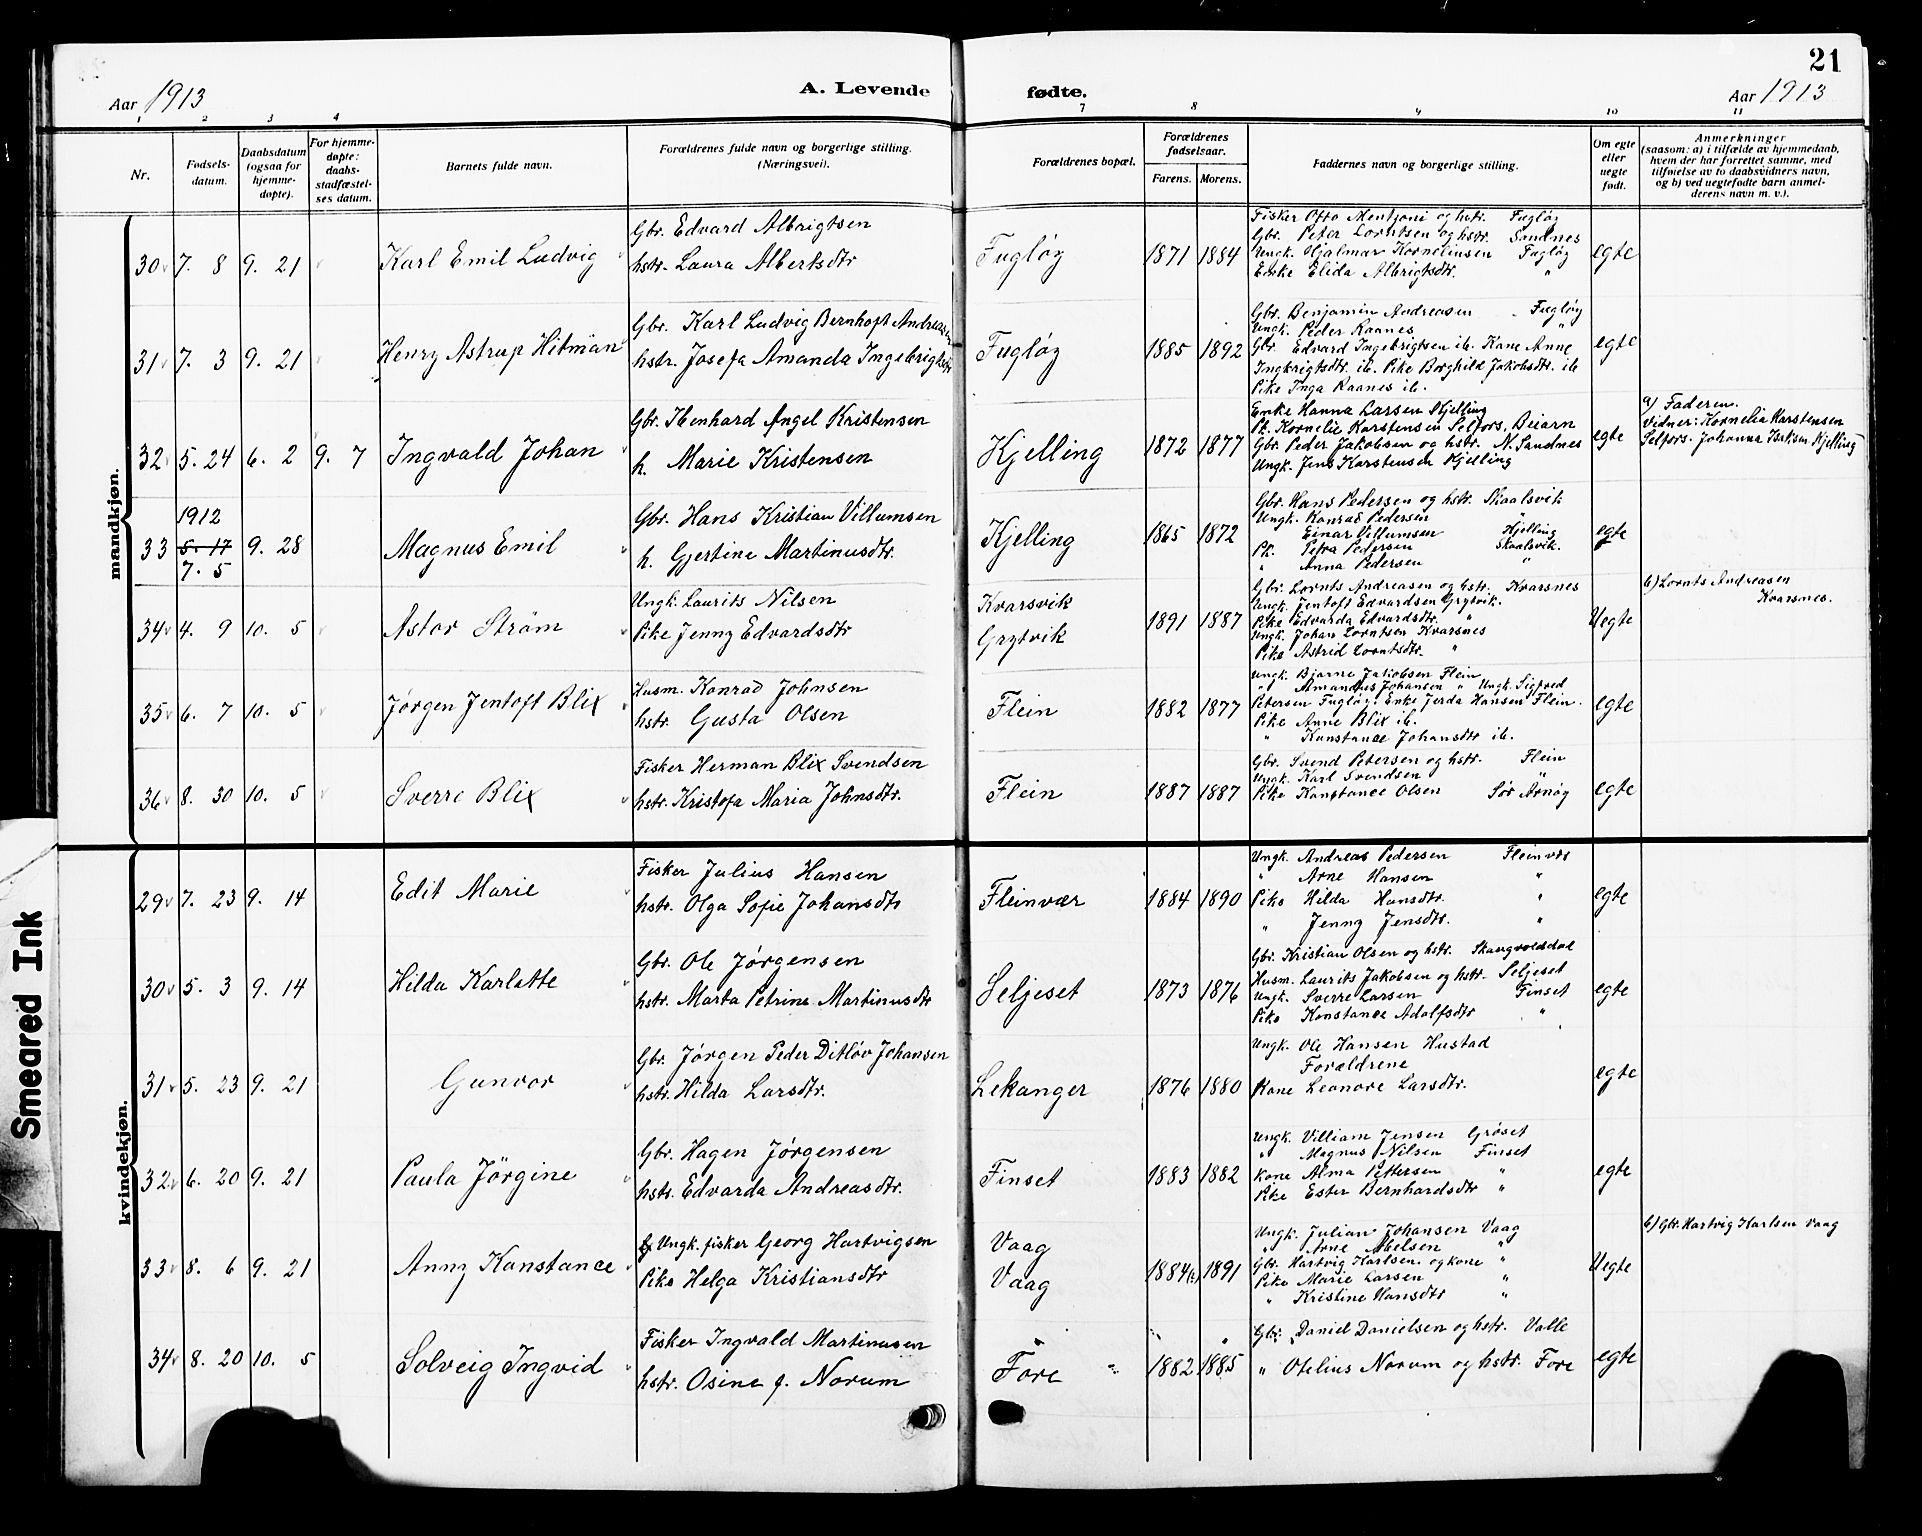 21
Aar 1913
A. Levende
fødte.
Aar 1913
1 2 3 4 7 8 9 10 11
Nr.
Fødsels-
datum.
Daabsdatum
(ogsaa for
hjemme-
døpte).
For hjemme-
døpte:
daabs-
stadfæstel-
ses datum.
Barnets fulde navn.
Forældrenes fulde navn og borgerlige stilling.
(Næringsvei).
Forældrenes bopæl.
Forældrenes
fødselsaar.
Farens. Morens.
Faddernes navn og borgerlige stilling.
Om egte
eller
uegte
født.
Anmerkninger
(saasom: a) i tilfælde av hjemmedaab,
hvem der har forrettet samme, med
tilføielse av to daabsvidners navn,
og b) ved uegtefødte barn anmel-
derens navn m. v.).
mandkjøn.
30 7. 8 9. 21 Karl Emil Ludvig
Gbr. Edvard Albrigtsen
hstr. Laura Albertsdtr
Fugløy 1871 1884
Fisker Otto Mentzoni og hstr. Fugløy
Gbr. Peter Lorntsen og hstr. Sandnes
Ungk. Hjalmar Kornelinsen Fugløy
Enke Elida Albrigtsdtr. "
egte
31 7. 3 9. 21 Henry Astrup Hitman
Gbr. Karl Ludvig Bernhoft Andreasen
hstr. Josefa Amanda Ingebrigtsdtr
Fugløy 1885 1892
Gbr. Benjamin Andreasen Fugløy
Ungk. Peder Raanes "
Gbr. Edvard Ingebrigtsen ib. Kone Anne
Ingkrigtsdtr. ib. Pike Borghild Jakobsdtr. ib
Pike Inga Raanes ib.
egte
32 5. 24 6. 2 9. 7 Ingvald Johan
Gbr. Ibenhard Angel Kristensen
h. Marie Kristensen
Kjelling 1872 1877
Enke Hanna Larsen Kjelling
Pk. Kornelie Karstensen Selfors, Beiarn
Gbr. Peder Jakobsen og hstr. N. Sandnes
Ungk. Jens Karstensen Kjelling
egte
a) Faderen.
Vidner: Kornelia Karstensen
Selfors. Johanna Kjelling
33 1912
5. 17
7. 5
9. 28 Magnus Emil
Gbr. Hans Kristian Villumsen
h. Gjertine Martinusdtr.
Kjelling 1865 1872
Gbr. Hans Pedersen og hstr. Skaalsvik
Ungk. Konrad Pedersen "
" Einar Villumsen Kjelling
Pk. Petra Pedersen Skaalsvik.
" Anna Pedersen "
egte
34 4. 9 10. 5 Astor Strøm
Ungk. Laurits Nilsen
Pike Jenny Edvardsdtr
Kvarsvik
Grytvik
1891 1887
Gbr. Lornts Andreasen og hstr. Kvarsnes
Ungk. Jentoft Edvardsen Grytvik.
Pike Edvarda Edvardsdtr. "
Ungk. Johan Lorntsen Kvarsnes
Pike Astrid Lorntsdtr. "
Uegte
b) Lornts Andreasen
Kvarsnes.
35 6. 7 10. 5 Jørgen Jentoft Blix
Husm. Konrad Johnsen
hstr. Gusta Olsen
Flein 1882 1877
Ungk. Bjarne Jakobsen Flein
" Amandus Johansen " Ungk. Sigfred
Petersen Fugløy. Enke Jerda Hansen Flein.
Pike Anne Blix ib.
" Konstance Johansdtr ib.
egte
36 8. 30 10. 5 Sverre Blix
Fisker Herman Blix Svendsen
hstr. Kristofa Maria Johnsdtr.
Flein 1887 1887
Gbr. Svend Petersen og hstr. Flein
Ungk. Karl Svendsen "
Pike Konstance Olsen Sør Arnøy
egte
kvindekjøn.
29 7. 23 9. 14 Edit Marie
Fisker Julius Hansen
hstr. Olga Sofie Johansdtr
Fleinvær 1884 1890
Ungk. Andreas Pedersen Fleinvær
" Arne Hansen "
Pike Hilda Hansdtr. "
" Jenny Jensdtr. "
egte
30 5. 3 9. 14 Hilda Karlotte
Gbr. Ole Jørgensen
hstr. Marta Petrine Martinusdtr
Seljeset 1873 1876
Gbr. Kristian Olsen og hstr. Skaugvolddal
Husm. Laurits Jakobsen og hstr. Seljeset
Ungk. Sverre Larsen Finset
Pike Konstance Adolfsdtr "
egte
31 5. 23 9. 21 Gunvor
Gbr. Jørgen Peder Ditløv Johansen
hstr. Hilda Larsdtr.
Lekanger 1876 1880
Ungk. Ole Hansen Hustad
Forældrene
Kone Leonore Larsdtr.
egte
32 6. 20 9. 21 Paula Jörgine
Gbr. Hagen Jørgensen
hstr. Edvarda Andreasdtr.
Finset 1883 1882
Ungk. Villiam Jensen Grøset
" Magnus Nilsen Finset
Kone Alma Pettersen "
Pike Ester Bernhardsdtr "
egte
33 8. 6 9. 21 Anny Konstance
Ungk. fisker Georg Hartvigsen
Pike Helga Kristiansdtr
Vaag
Vaag
1884 1891
Ungk. Julian Johansen Vaag
" Arne Abelsen "
Gbr. Hartvig Karlsen og kone "
Pike Marie Larsen "
" Kristine Hansdtr "
Uegte
b) Gbr. Hartvig Karlsen Vaag
34 8. 20 10. 5 Solveig Ingvid
Fisker Ingvald Martinusen
hstr. Osine f. Norum
Fore 1882 1885
Gbr. Daniel Danielsen og hstr. Valle
" Otelius Norum og hstr. Fore
egte
Smeared Ink